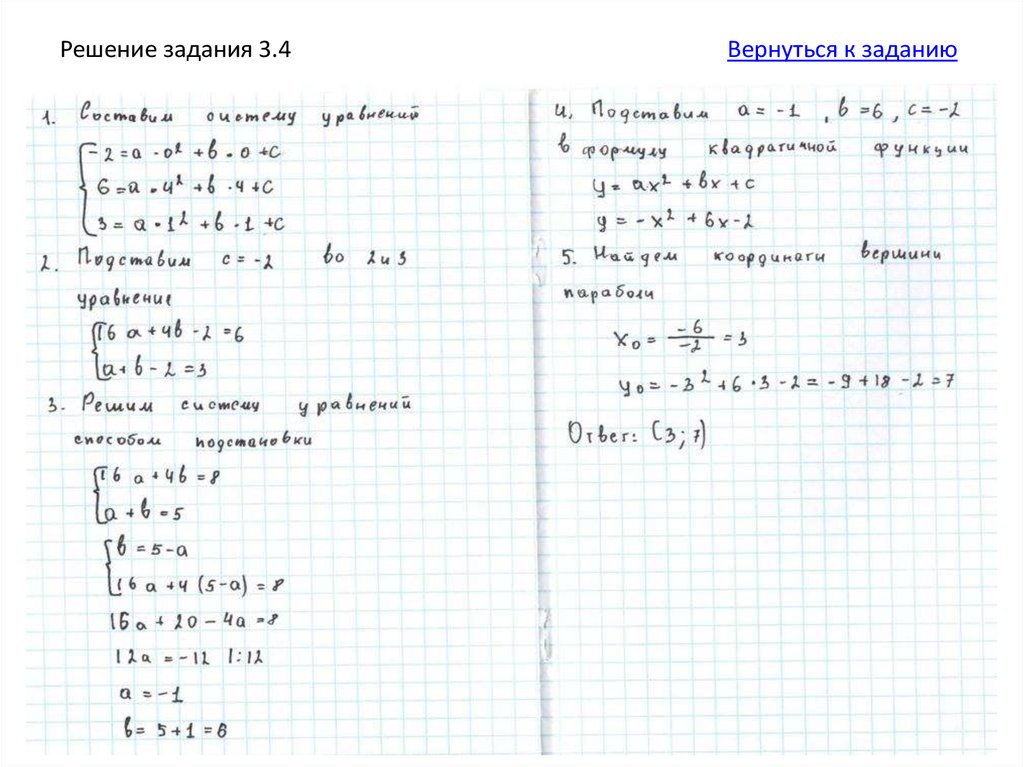 Решение задания 3.4
Вернуться к заданию
1. Составим систему уравнений
-2 = a · 0² + b · 0 + c
6 = a · 4² + b · 4 + c
3 = a · 1² + b · 1 + c
2. Подставим c = -2 во 2 и 3
уравнение
16 a + 4b - 2 = 6
a + b - 2 = 3
3. Решим систему уравнений
способом подстановки
16 a + 4b = 8
a + b = 5
b = 5 - a
16 a + 4 (5 - a) = 8
16 a + 20 - 4a = 8
12 a = -12 |:12
a = -1
b = 5 + 1 = 6
4. Подставим a = -1, b = 6, c = -2
в формулу квадратичной функции
y = ax² + bx + c
y = -x² + 6x - 2
5. Найдем координаты вершины
параболы
x₀ = -6/-2 = 3
y₀ = -3² + 6 · 3 - 2 = -9 + 18 - 2 = 7
Ответ: (3; 7)